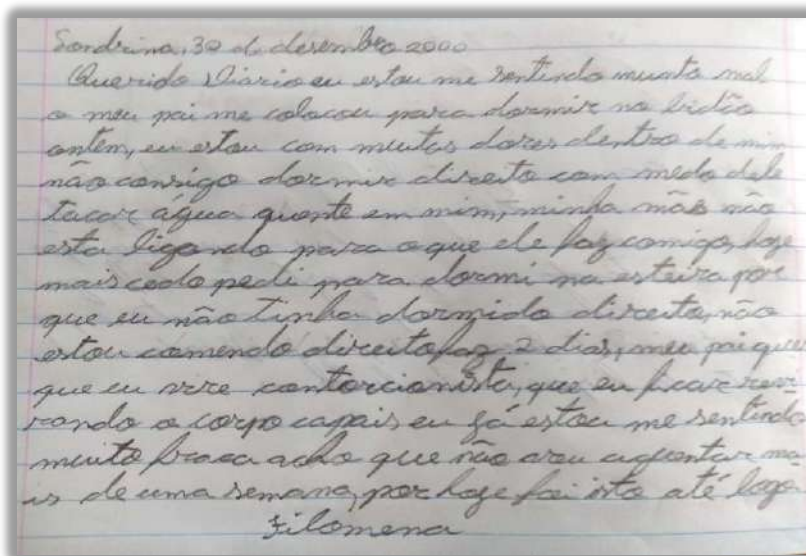 Londrina, 30 de desembro 2000
Querido Diario eu estou me sentindo munto mal
o meu pai me colocou para dormir no
ontem, eu estou com muitas dores dentro de mim
não consigo dormir direito com medo dele
tacar água quente em mim, minha mãe não
esta ligando para o que ele faz comigo, hoje
mais cedo pedi para dormi na esteira por
que eu não tinha dormido direito, não
estou comendo direito faz 2 dias, meu pai quer
que eu vire contorcionista, que eu ficar
rando o corpo capais eu já estou me sentindo
muito fraca acho que não vou aguentar ma
is de uma semana, por hoje foi isto até logo
Filomena